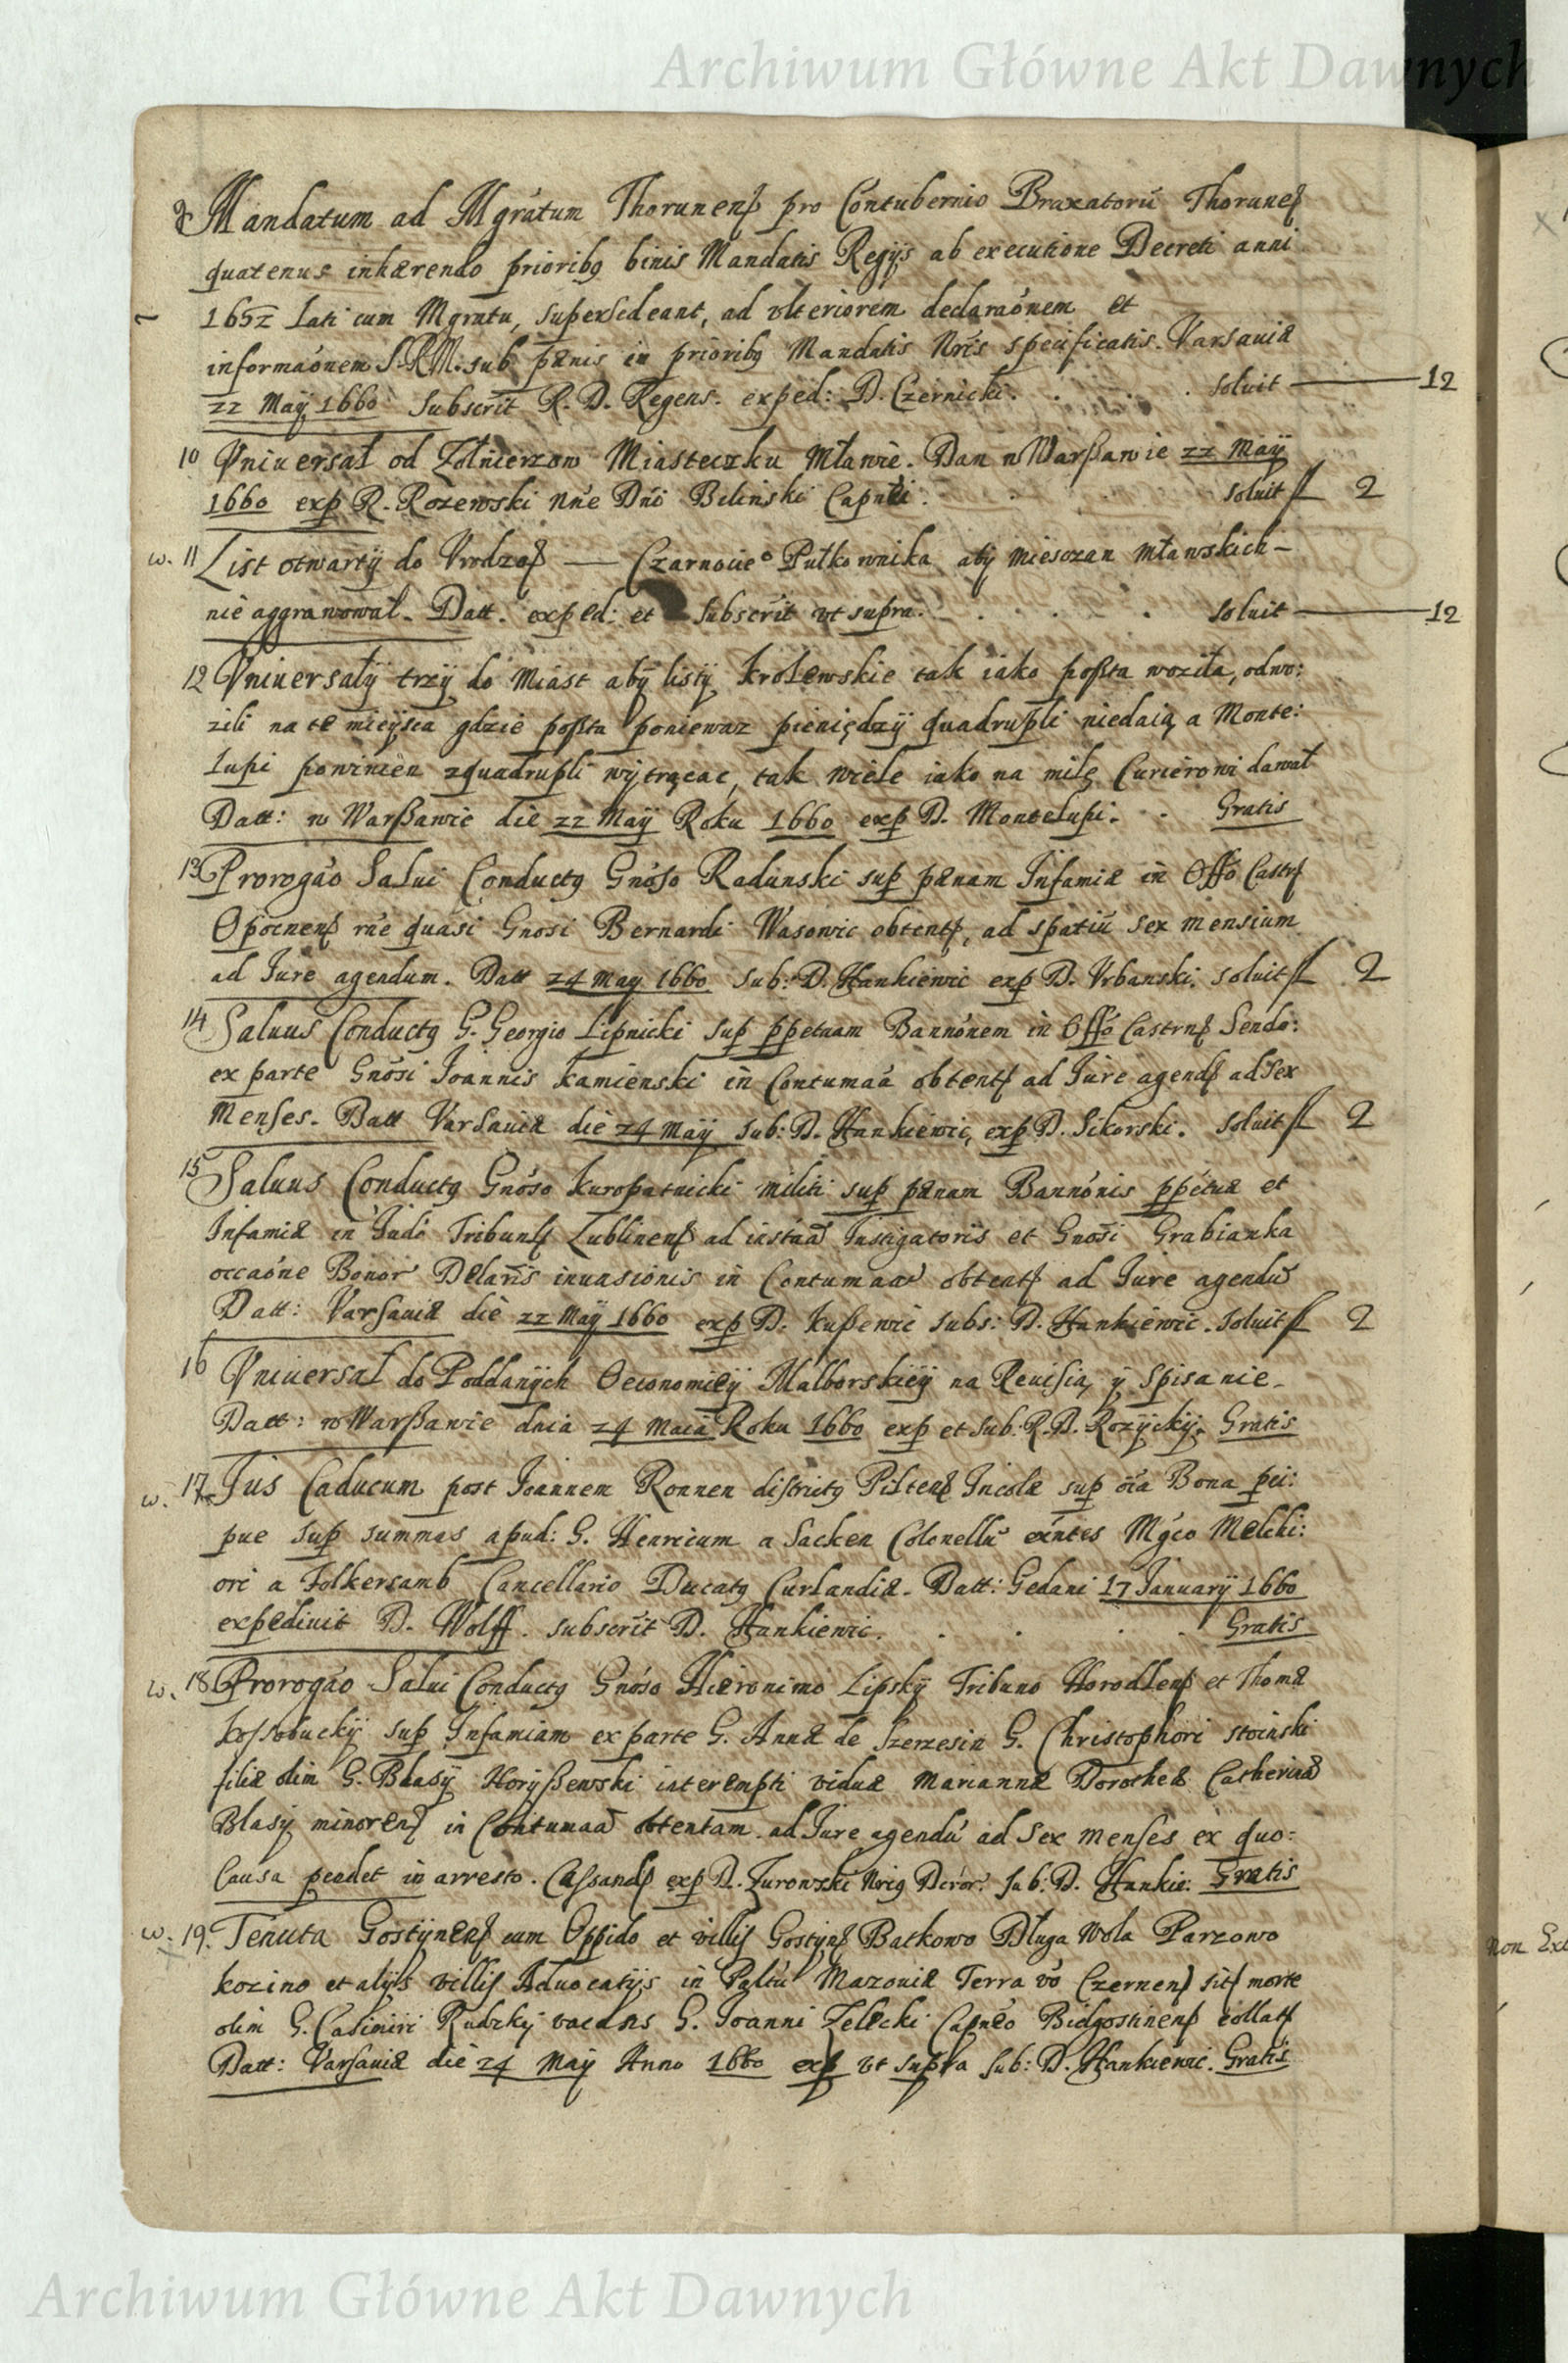 Archiwum Główne Akt Dawnych
9 Mandatum ad Mgratum Thorunens pro Contubernio Braxatorũ Thorunens
quatenus inhærendo priorib9 binis Mandatis Regÿs ab executione Decreti anni
1652 Lati cum Mgratu, supersedeant, ad vlteriorem declaraónem et
informaónem S.R.M. sub pænis in priorib9 Mandatis Nrís specificatis. Varsaviæ
22 Maÿ 1660 Subscrit R. D. Regens. exped: D. Czernicki. soluit — 12
10 Vniuersał od Zołnierzow Miasteczku Mławie. Dan w Warßawie 22 Maÿ
1660 exp R. Rozewski nñe Dńi Bilinski Capnĕi. soluit f 2
w. 11 List otwartÿ do Vrodzo — Czarnoue° Pułkownika abÿ miesczan mławskich –
nie aggrawował. Datt. exped: et subscrit vt supra. soluit — 12
12 Vniuersałÿ trzÿ do Miast abÿ listÿ krolewskie tak iako poßta woziła, odwo:
zili na te mieÿsca gdzie poßta poniewaz pieniędzÿ quadrupli niedaią a Monte:
Lupi powinien zquadrupli wÿtrącac, tak wiele iako na milę Curierowi dawał
Datt: w Warßawie die 22 Maÿ Roku 1660 exp D. Montelupi. Gratis
13 Prorogáo Salui Conduct9 Gnóso Radunski sup pænam Infamiæ in Offo Castr
Opocnens rñe quasi Gnosi Bernardi Wasowic obtent, ad spatiũ sex mensium
ad Jure agendum. Datt 24 may 1660 Sub: D. Hankiewic exp D. Vrbanski. soluit f 2
14 Saluus Conduct9 G. Georgio Lipnicki sup ppetuam Bannónem in Offo Castrn Sendo:
ex parte Gnosi Joannis Kamienski in Contumaã obtent ad Jure agend ad sex
Menses. Datt Varsauiæ die 24 Maÿ sub: D. Hankiewic, exp D. Sikorski. soluit f 2
15 Saluus Conduct9 Gnóso Kuropatnicki militi sup pænam Bannónis ppétuæ et
Infamiæ in Judi Tribunl Lublinens ad instaã Instigatoris et Gnosi Grabianka
occaóne Bonor Delaris inuasionis in Contumaã obtent ad Jure agendũ
Datt: Varsauiæ die 22 Maÿ 1660 exp D. Kußewic subs: D. Hankiewic. soluit f 2
16 Vniuersał do Poddanÿch Oeconomiеÿ Malborskieÿ na Reuisią ÿ Spisanie.
Datt: w Warßawie dnia 24 Maia Roku 1660 exp et sub: R. D. Rozÿckÿ. Gratis
w. 17. Jus Caducum post Joannem Ronnen district9 Pilten Incolæ sup oía Bona pci:
pue sup summas apud: G. Henricum a Sacken Colonellũ exntes Mgco Melchi:
ori a Folkersamb Cancellario Ducat9 Curlandiæ. Datt: Gedani 17 Januarÿ 1660
expediuit D. Wolff. subscrit D. Hankiewic. Gratis
w. 18 Prorogáo Salui Conduct9 Gnóso Hieronimo Lipskÿ Tribuno Horodlens et Thomæ
Kossobuckÿ sup Infamiam ex parte G. Annæ de Szerzesin G. Christophori Stoinski
filiæ olim G. Blasÿ Horÿßewski interempti viduæ Mariannæ Dorotheæ Catherinæ
Blasÿ minoren in Contumaã obtentam ad Jure agendũ ad Sex menses ex quo:
Causa pendet in arresto. Cassand exp D. Zurowski Nrig Dcrór. sub: D. Hankie: Gratis
w. 19. Tenuta Gostÿnens cum Oppido et villis Gostÿn Batkowo Długa Wola Parzowo
Kozino et alÿs villis Aduocatÿs in Paltũ Mazouiæ Terra vo Czernen sit morte
olim G. Casimiri Rudzkÿ vacans G. Joanni Zelecki Capnéo Bidgostinens collat
Datt: Varsauiæ die 24 Maÿ Anno 1660 exp vt supra sub: D. Hankiewic. Gratis
non Ext
Archiwum Główne Akt Dawnych